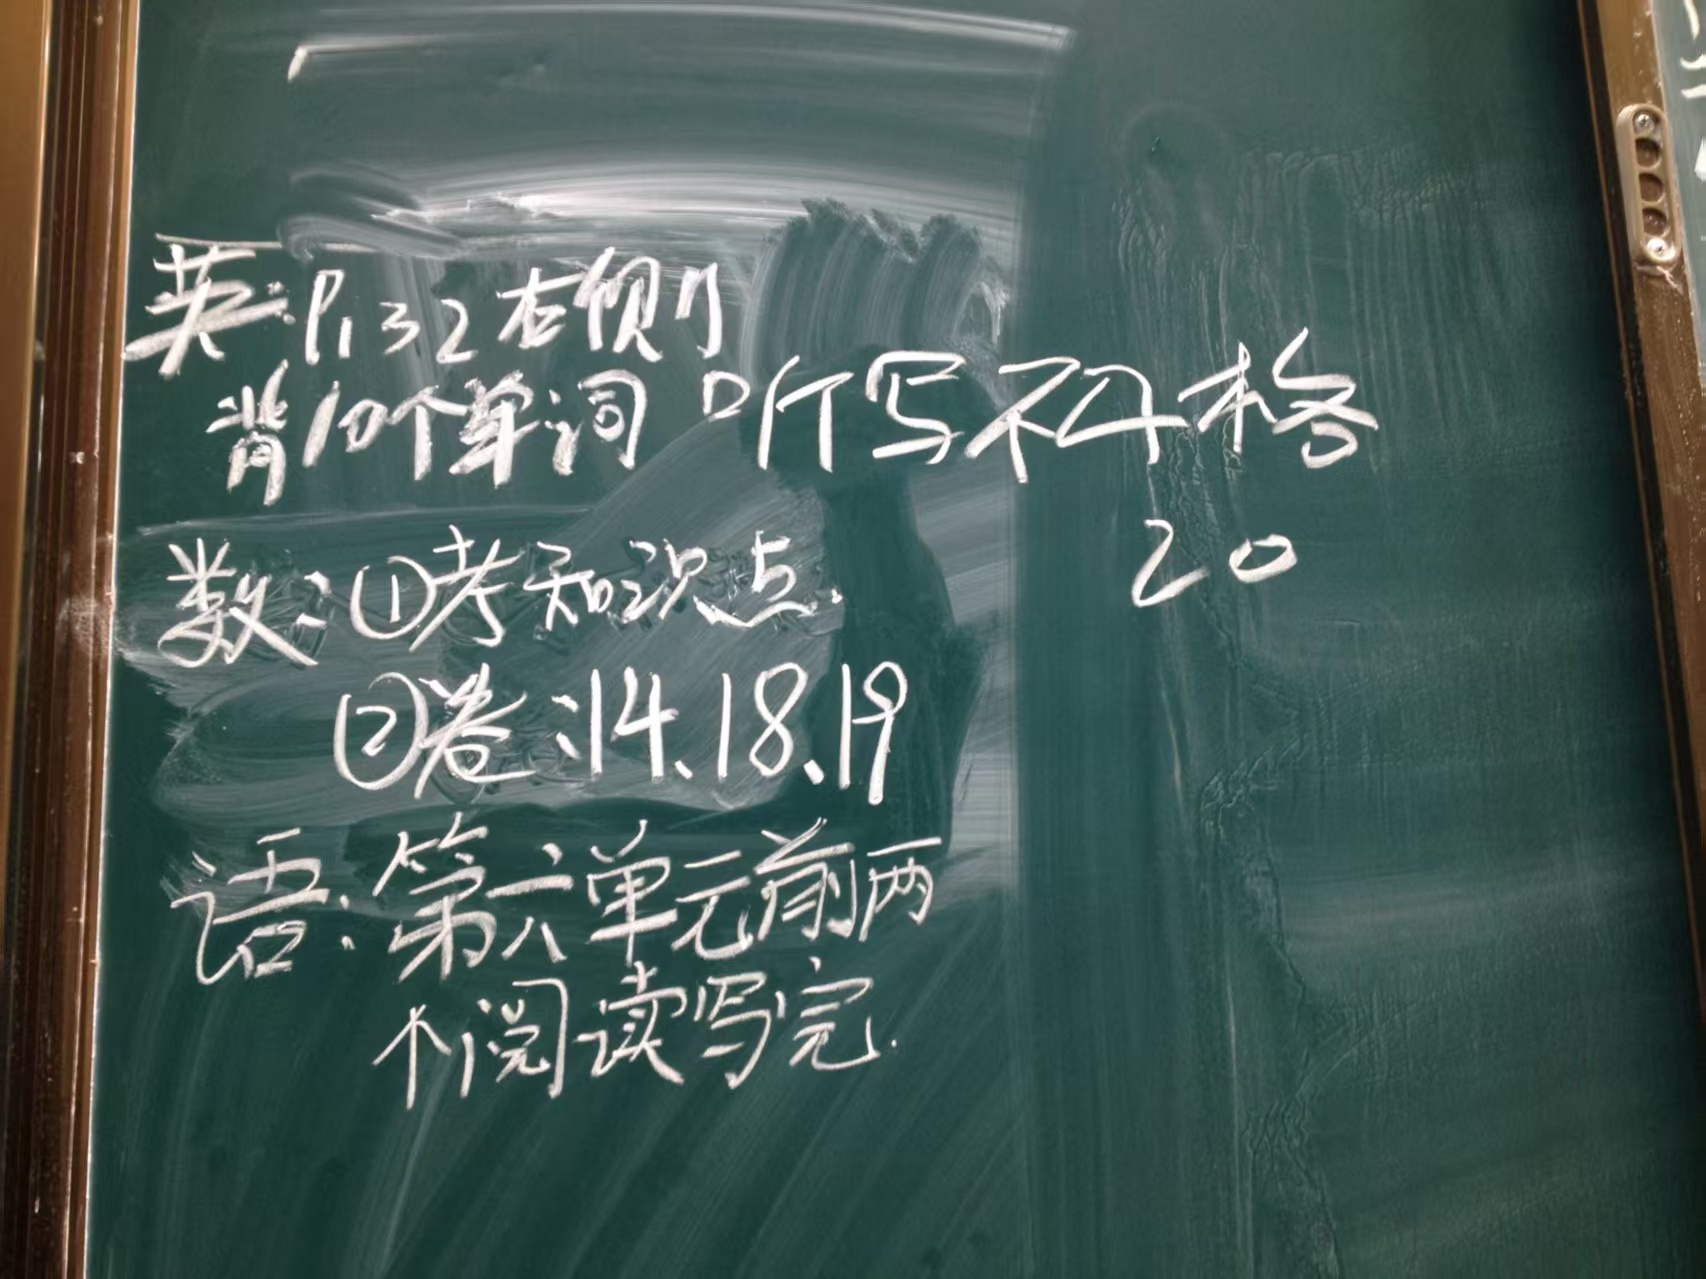 英:P132右侧
背10个单词 听写不及格
20
数:①考知识点.
②卷:14、18、19
语:第六单元前两
个阅读写完.